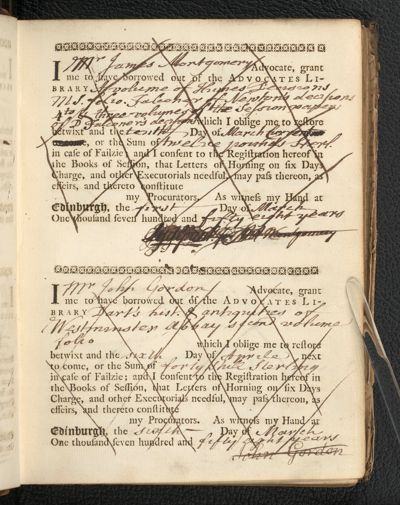 I Mr James Montgomery Advocate, grant
me to have borrowed out of the ADVOCATES LI-
BRARY A volume of Humes Decisions
M.S. folio. Falconer & Newtons decisions
three volumes of the Session papers
which I oblige me to restore
betwixt and the tenth Day of March
or the Sum of twelve pounds Sterl.
in case of Failzie; and I consent to the Registration hereof in
the Books of Session, that Letters of Horning on six Days
Charge, and other Executorials needful, may pass thereon, as
effeirs, and thereto constitute
my Procurators. As witness my Hand at
Edinburgh, the first Day of March
One thousand seven hundred and fifty eight years
Montgomery
I Mr John Gordon Advocate, grant
me to have borrowed out of the ADVOCATES LI-
BRARY Dart's hist. & antiquities of
Westminster Abbay second volume
folio which I oblige me to restore
betwixt and the sixth Day of Aprile next
to come, or the Sum of forty shill Sterling
in case of Failzie; and I consent to the Registration hereof in
the Books of Session, that Letters of Horning on six Days
Charge, and other Executorials needful, may pass thereon, as
effeirs, and thereto constitute
my Procurators. As witness my Hand at
Edinburgh, the sixth Day of March
One thousand seven hundred and fifty eight years
John Gordon